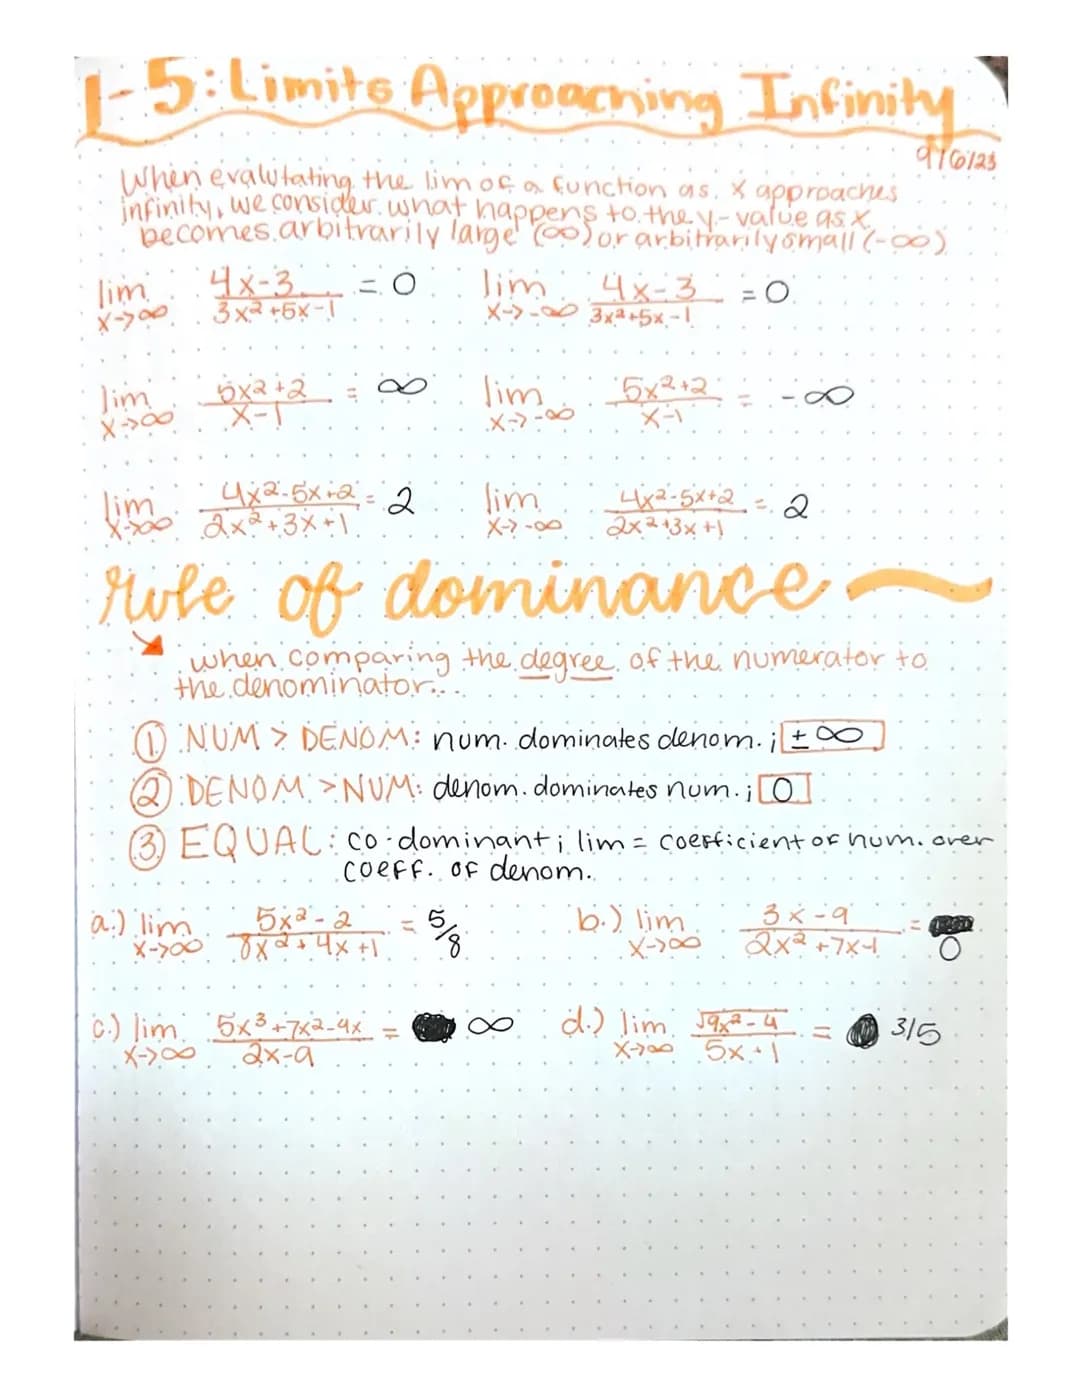 1-5: Limits Approaching Infinity
9/6/23
When evalutating the lim of a function as x approaches
infinity, we consider what happens to the y-value as x
becomes arbitrarily large (∞) or arbitrarily small (-∞)
lim x->∞ (4x-3)/(3x²+5x-1) = 0 lim x->-∞ (4x-3)/(3x²+5x-1) = 0
lim x->∞ (5x²+2)/(x-1) = ∞ lim x->-∞ (5x²+2)/(x-1) = -∞
lim x->∞ (4x²-5x+2)/(2x²+3x+1) = 2 lim x->-∞ (4x²-5x+2)/(2x²+3x+1) = 2
rule of dominance
when comparing the degree of the numerator to
the denominator...
① NUM > DENOM: num. dominates denom. ; ± ∞
② DENOM > NUM: denom. dominates num. ; 0
③ EQUAL: co-dominant ; lim = coefficient of num. over
coeff. of denom.
a.) lim x->∞ (5x²-2)/(8x²+4x+1) = 5/8 b.) lim x->∞ (3x-9)/(2x²+7x-1) = 0
c.) lim x->∞ (5x³+7x²-9x)/(2x-9) = ∞ d.) lim x->∞ √(9x²-4)/(5x+1) = 3/5